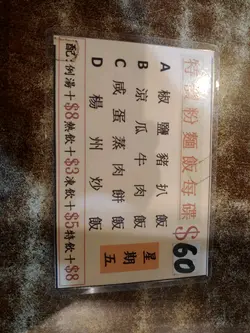 特式粉麵飯每碟$60
A 椒鹽豬扒飯
B 涼瓜牛肉飯
C 咸蛋蒸肉餅飯
D 楊州炒飯
星期五
配:例湯+$8熱飲+$3凍飲+$5特飲+$8